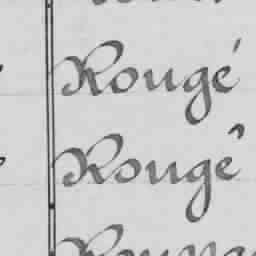 Rougé
Rougé